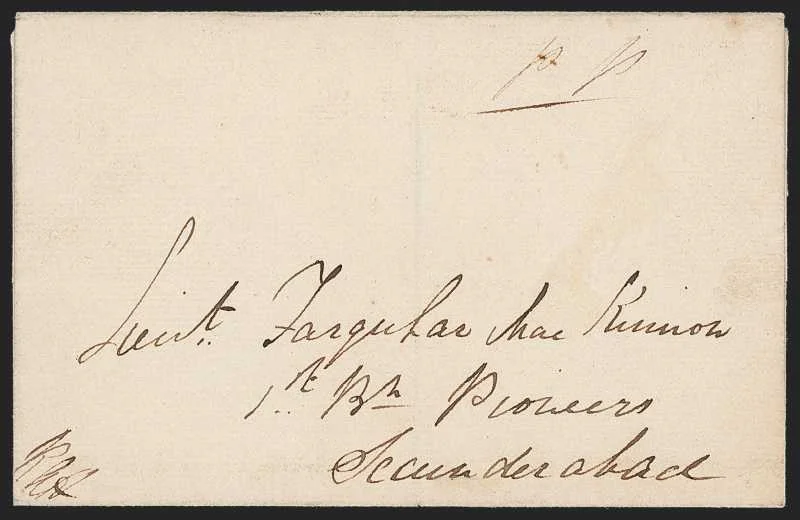 P P
Lieut. Farquhar Mac Kinnon
1st. Bn Pioneers
Secunderabad